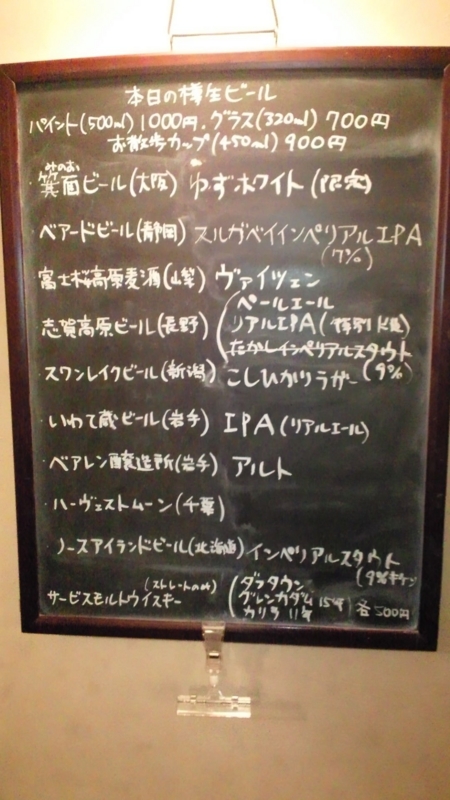 本日の樽生ビール
パイント(500ml)1000円、グラス(320ml)700円
お散歩カップ(450ml)900円
みのお
箕面ビール(大阪) ゆずホワイト(限定)
ベアードビール(静岡) スルガベイインペリアルIPA
(7%)
富士桜高原麦酒(山梨) ヴァイツェン
ペールエール
志賀高原ビール(長野) リアルIPA(
たかしインペリアルスタウト
(9%)
スワンレイクビール(新潟) こしひかりラガー
いわて蔵ビール(岩手) IPA(リアルエール)
ベアレン醸造所(岩手) アルト
ハーヴェストムーン(千葉)
ノースアイランドビール(北海道) インペリアルスタウト
(9%キケン
(ストレートのみ) ダラタウン
サービスモルトウイスキー グレンカダム 15年 各500円
カリラ 11年